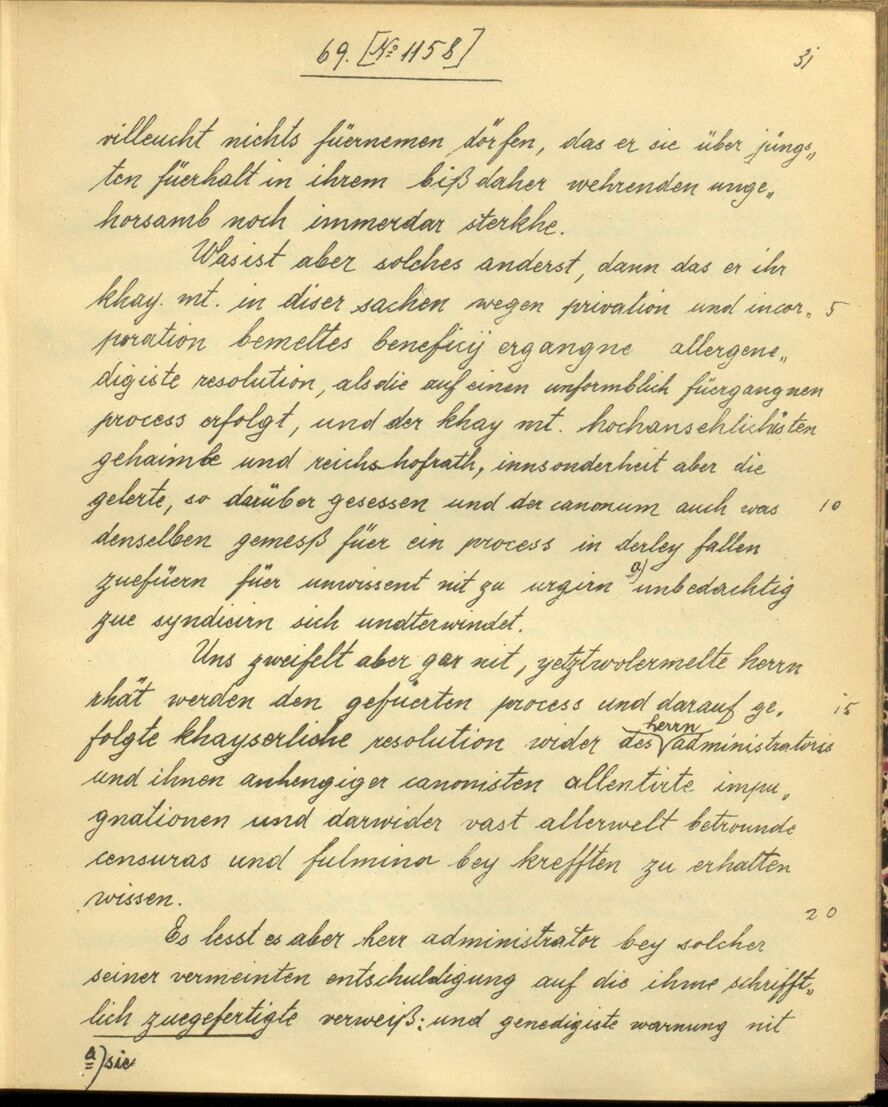 69. [No 1158]
31
villeucht nichts füernemen dörfen, das er sie über jüngs„
ten füerhalt in ihrem biß daher wehrenden unge„
horsamb noch immerdar sterkhe.
Was ist aber solches anderst, dann das er ihr
khay. mt. in diser sachen wegen privation und incor„ 5
poration bemeltes beneficij ergangne allergene„
digiste resolution, als die auf einen unformblich füergangnen
process erfolgt, und der khay mt. hochansehlichisten
gehaimbe und reichshofrath, innsonderheit aber die
gelerte, so darüber gesessen und der canonum auch was 10
denselben gemesß füer ein process in derley fallen
zuefüern für unwissent nit zu urgirn a) unbedachtig
zue syndicirn sich undterwindet.
Uns zweifelt aber gar nit, yetztwolermelte herrn
rhät werden den gefüerten process und darauf ge„ 15
folgte khayserliche resolution wider des herrn administratoris
und ihnen anhengiger canonisten allentirte impu„
gnationen und darwider vast allerwelt betrounde
censuras und fulmina bey krefften zu erhalten
wissen.
20
Es lesst es aber herr administrator bey solcher
seiner vermeinten entschuldigung auf die ihme schrifft„
lich zuegefertigte verweiß: und genedigiste warnung nit
a) sic